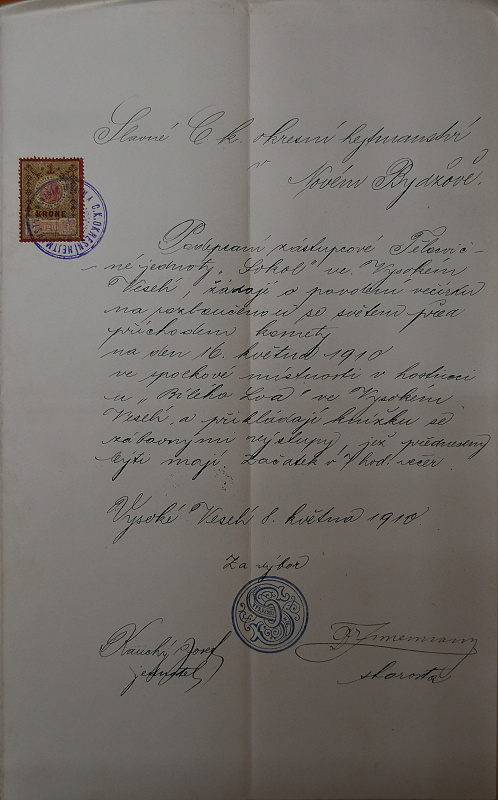 Slavné C. k. okresní hejtmanství
v Novém Bydžově.
KRONE
C.K. OKRESNÍ HEJTM
Podepsaní zástupcové Tělocvič-
né jednoty „Sokol" ve Vysokém
Veselí, žádají o povolení večírku
na rozloučenou se světem před
příchodem komety
na den 16. května 1910
ve spolkové místnosti v hostinci
u „Bílého Lva" ve Vysokém
Veselí, a přikládají knížku se
zábavnými výstupy, jež předneseny
býti mají. Začátek v 7 hod. večer
Vysoké Veselí 8. května 1910.
Za výbor
Kauchý Josef
jednatel
starosta